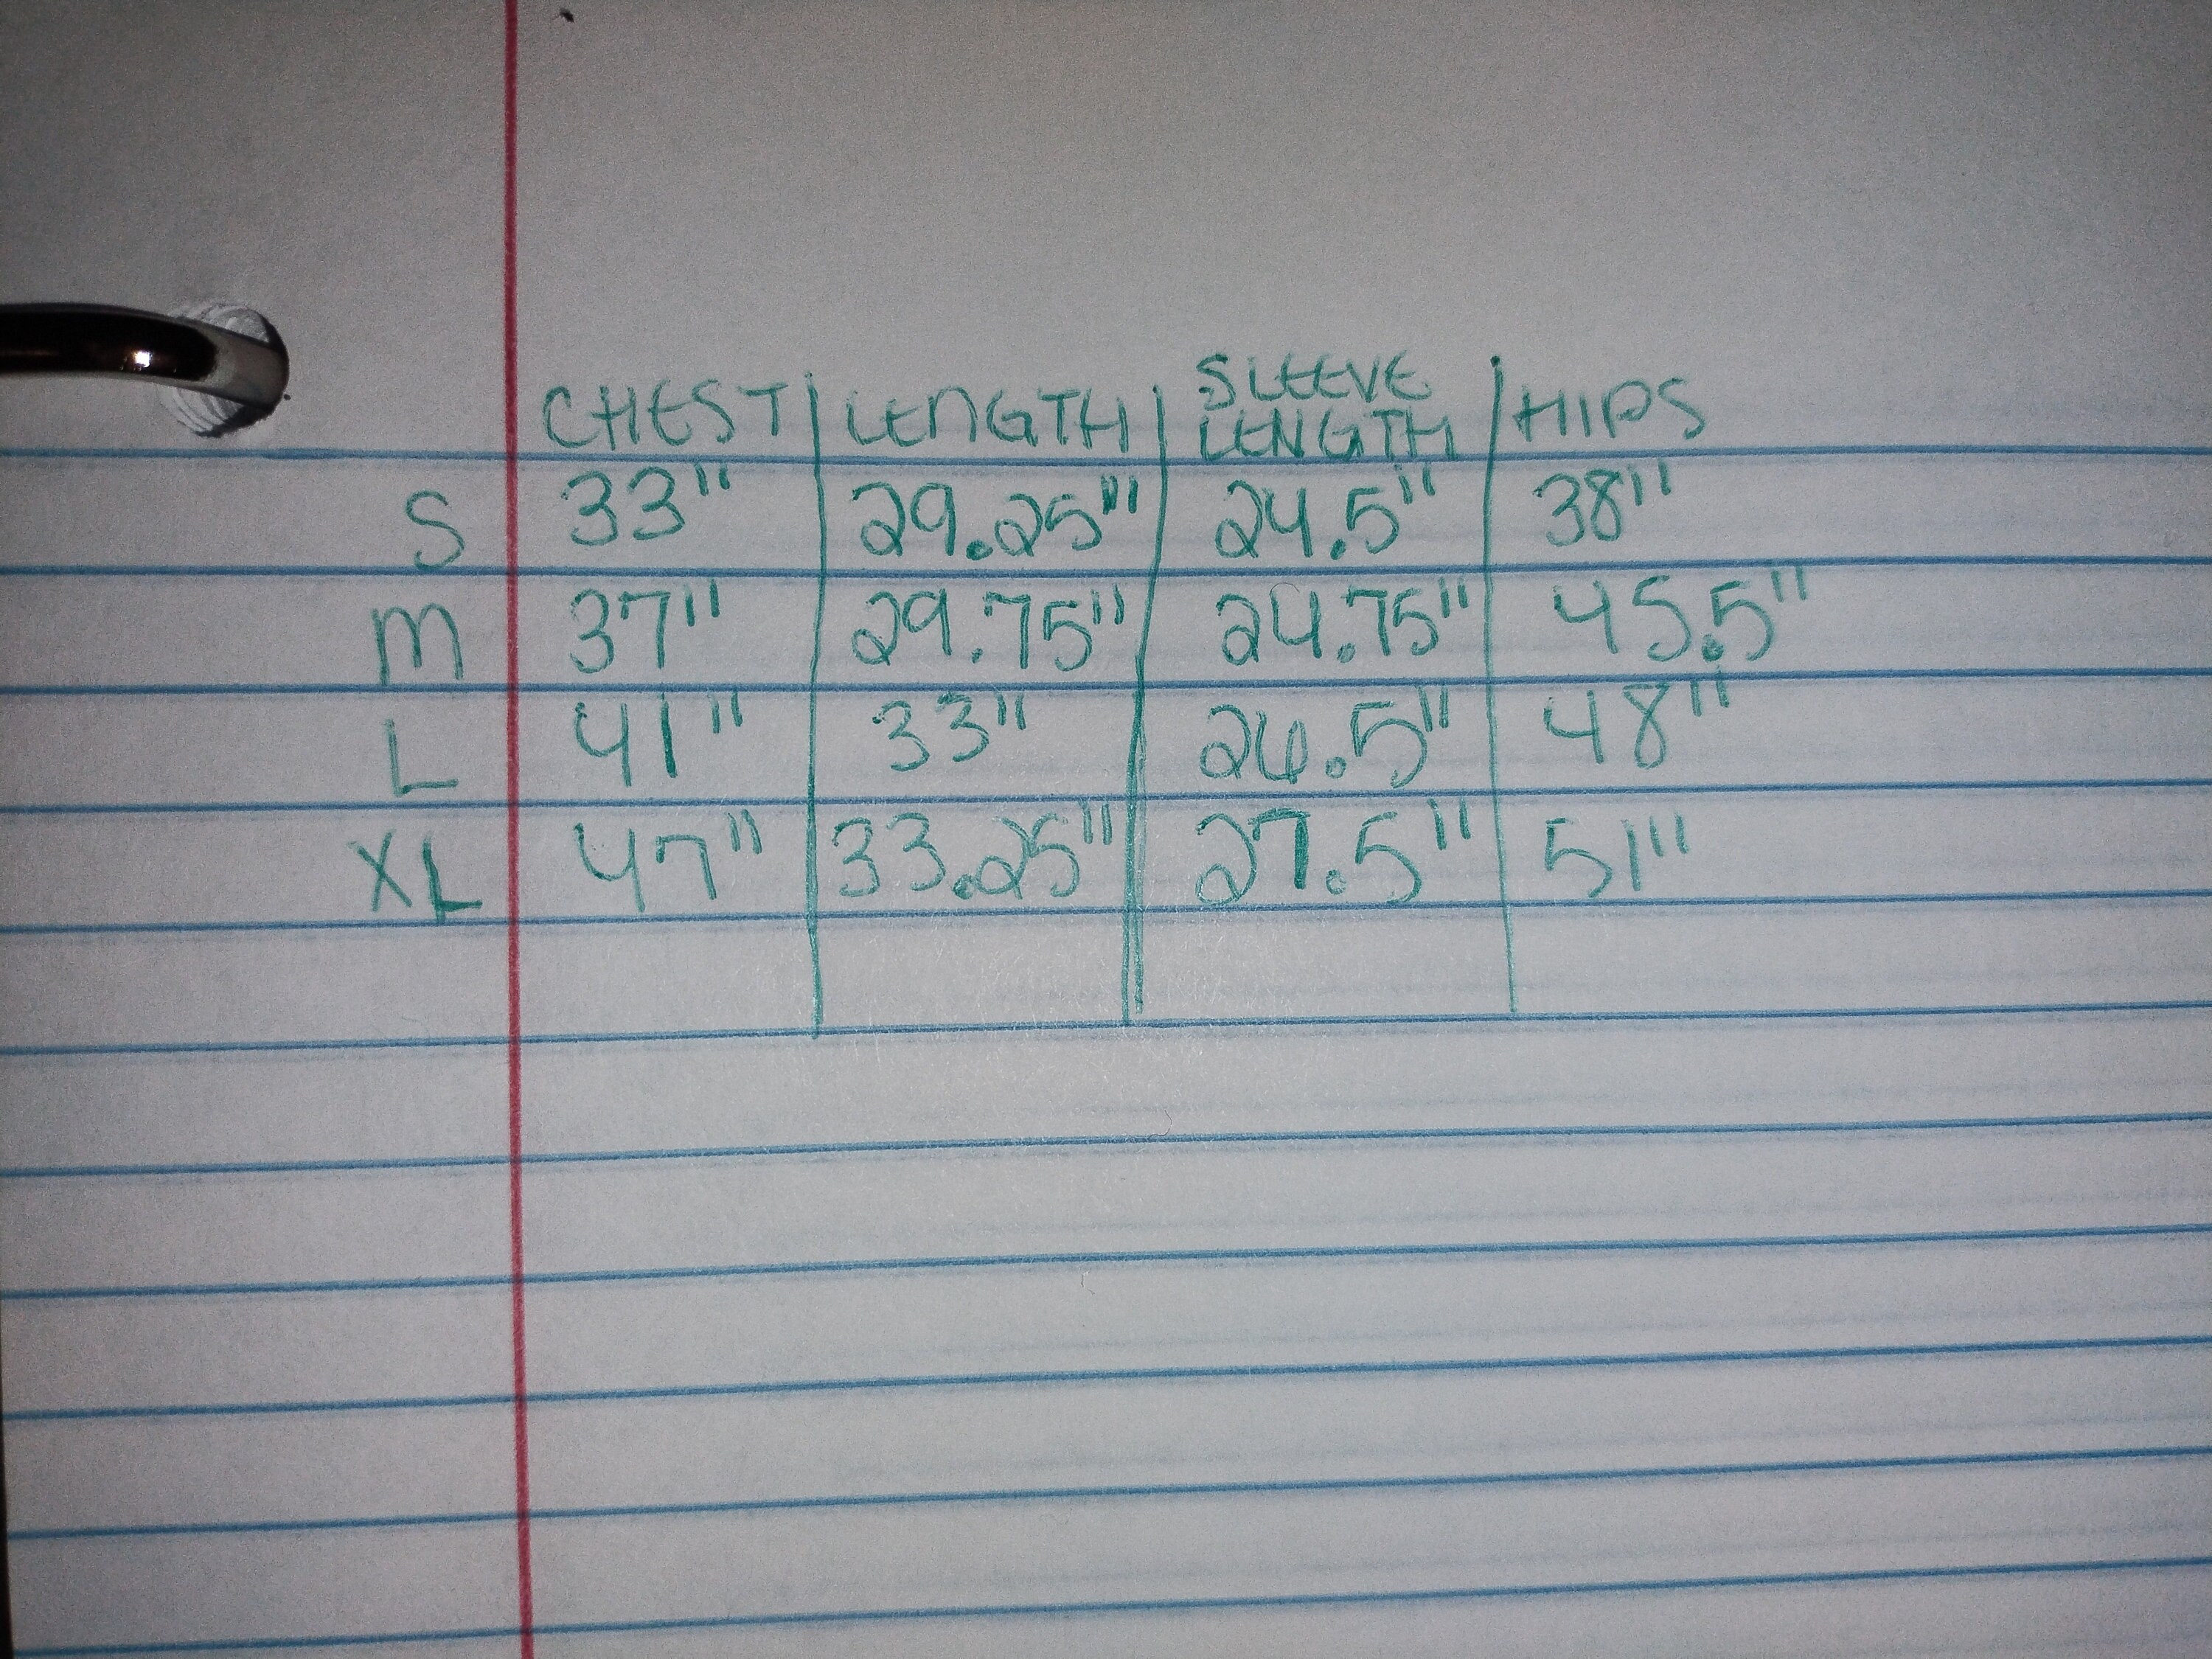 CHEST LENGTH SLEEVE LENGTH HIPS
S 33" 29.25" 24.5" 38"
M 37" 29.75" 24.75" 45.5"
L 41" 33" 26.5" 48"
XL 47" 33.25" 27.5" 51"